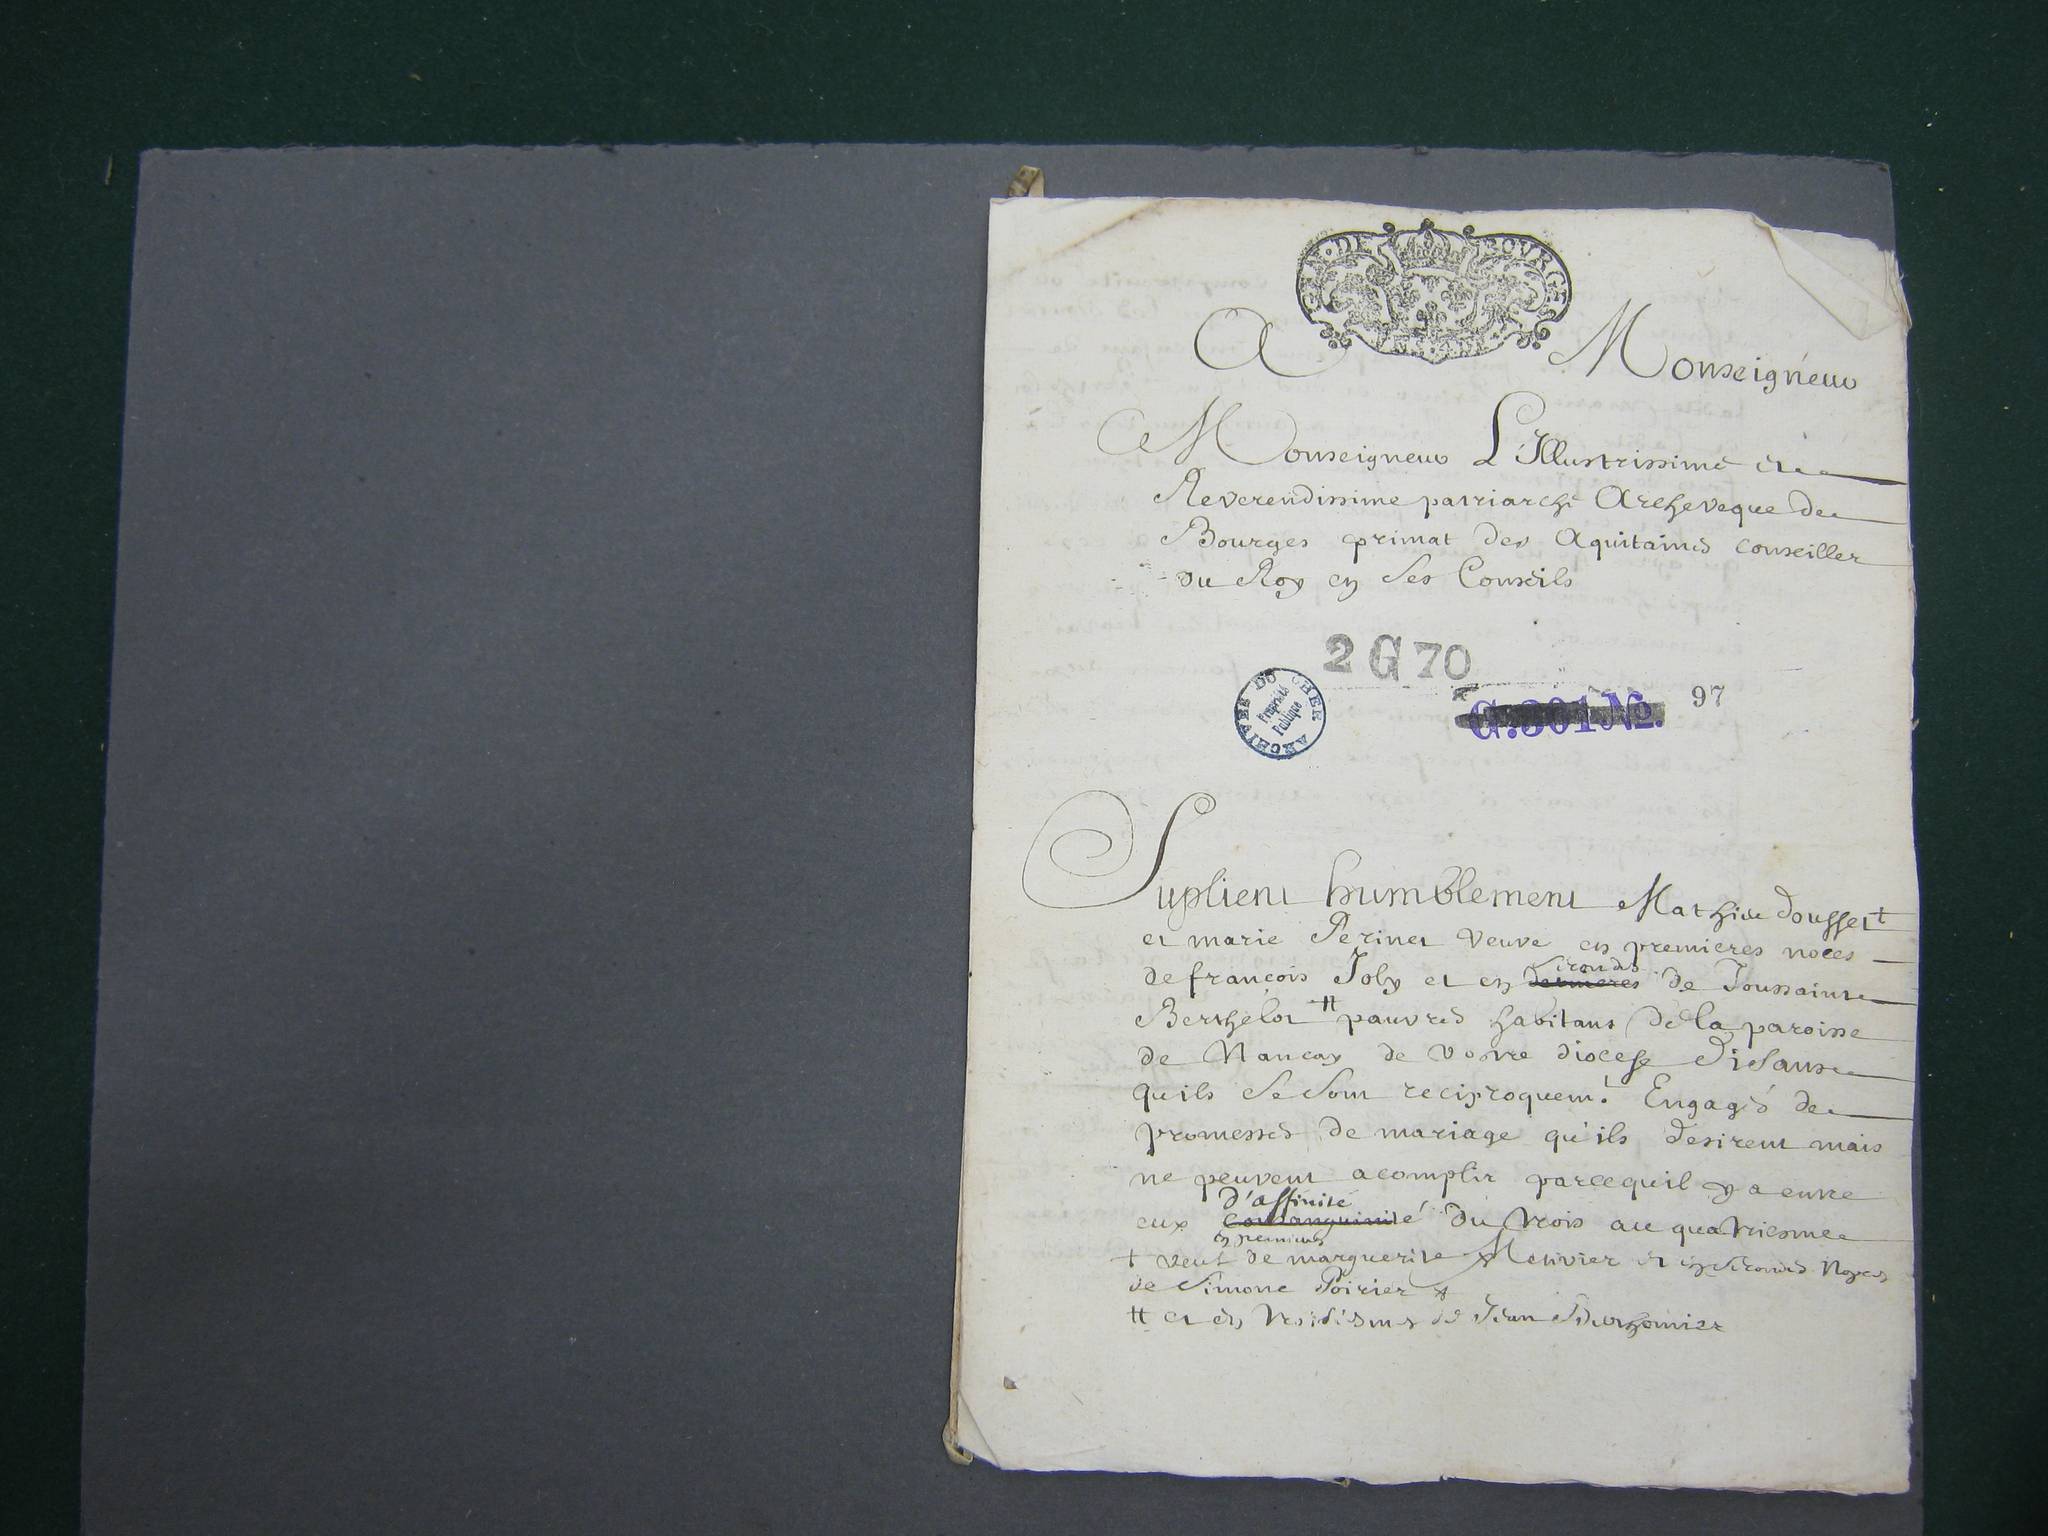 GEN. DE BOURGES
A Monseigneur
Monseigneur L'Illustrissime et
Reverendissime patriarche Archeveque de
Bourges primat des Aquitaines conseiller
du Roy en ses Conseils
2 G 70
ARCHIVES DU CHER
Propriété
Publique
G.301 No.
97
Suplient humblement Mathieu Dousset +
et marie Perinet veuve en premieres noces
secondes
de francois Joly et en dernieres de Toussaint
Berthelot # pauvres habitans de la paroisse
de Nancay de vostre diocese disans
quils se sont reciproquemt Engagés de
promesses de mariage qu'ils desirent mais
ne peuvent acomplir parcequil y a entre
d'affinité
eux consanguinité du trois au quatriesme
en premieres
+ veuf de marguerite Metivier et en secondes Noces
de Simone Poirier +
# et en troisiesmes de Jean